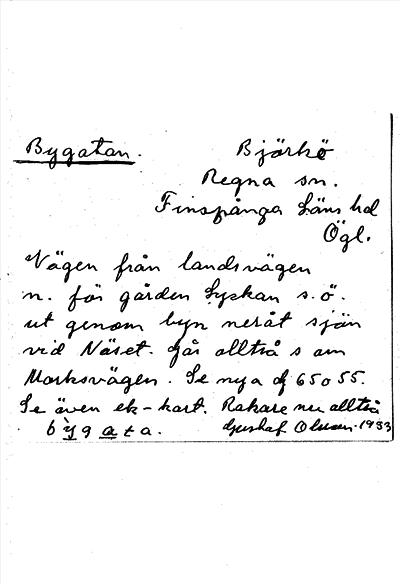 Bygatan. Björkö
Regna sn.
Finspånga Läns hd
Ögl.
Vägen från landsvägen
n. för gården Lyckan s.ö.
ut genom byn neråt sjön
vid Näset. Går alltså s om
Marksvägen. Se nya df 65055.
Se även ek-kart. Rakare nu alltså
bỳgata. Gustaf Olsson. 1933